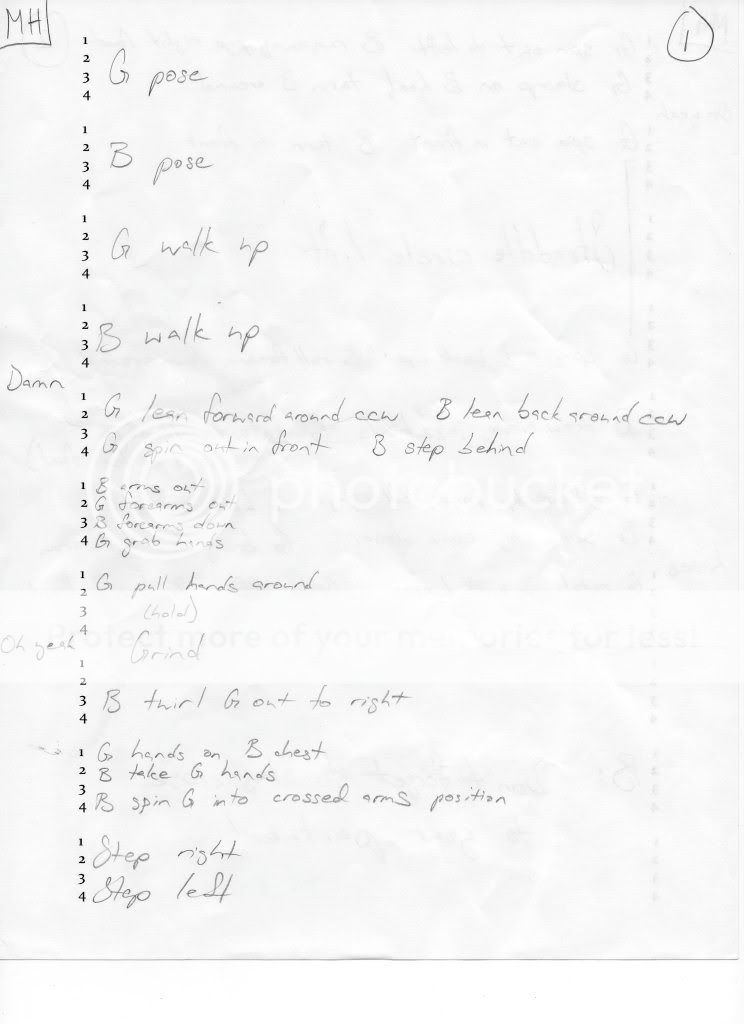 MH
1
1
2 G pose
3
4
1
2 B pose
3
4
1
2 G walk up
3
4
1
2
3 B walk up
4
Damn
1 G lean forward around ccw B lean back around ccw
2
3
4 G spin out in front B step behind
1 B arms out
2 G forearms out
3 B forearms down
4 G grab hands
1 G pull hands around
2
3 (hold)
4
Oh yeah Grind
1
2
3 B twirl G out to right
4
1 G hands on B chest
2 B take G hands
3
4 B spin G into crossed arms position
1 Step right
2
3
4 Step left
photobucket
Protect more of your memories for less!